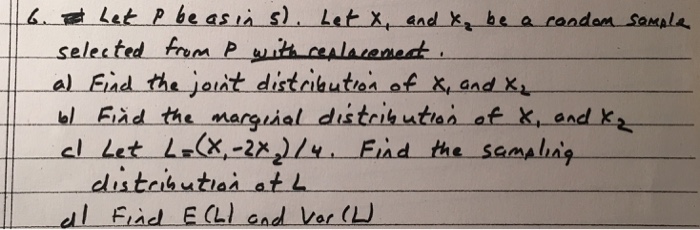 6. Let P be as in 5). Let X₁ and X₂ be a random sample
selected from P with replacement.
a) Find the joint distribution of X₁ and X₂
b) Find the marginal distribution of X₁ and X₂
c) Let L=(X₁-2X₂)/4. Find the sampling
distribution of L
d) Find E(L) and Var(L)